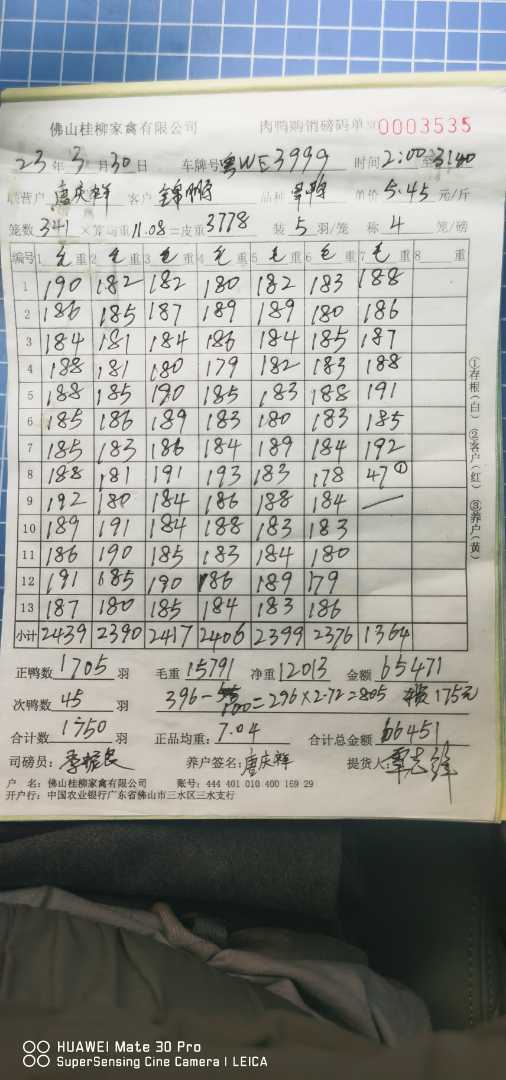 佛山桂柳家禽有限公司 肉鸭购销磅码单 №0003535
23年3月30日 车牌号粤WE3999 时间2:00至3:40
联营户 唐庆祥 客户 锦 品种 单价 5.45 元/斤
笼数341×笼均重11.08=皮重3778 装5羽/笼 称4笼/磅
编号 1 毛 重 2 毛 重 3 毛 重 4 毛 重 5 毛 重 6 毛 重 7 毛 重 8 重
1 190 182 182 180 182 183 188
2 186 185 187 189 189 180 186
3 184 181 184 186 184 185 187
4 188 181 180 179 182 183 188
5 188 185 190 185 183 188 191
6 185 186 189 183 180 183 185
7 185 183 186 184 189 184 192
8 188 181 191 193 183 178 47①
9 192 180 184 186 188 184 —
10 189 191 184 188 183 183
11 186 190 185 183 184 180
12 191 185 190 186 189 179
13 187 180 185 184 183 186
小计 2439 2390 2417 2406 2399 2376 1364
正鸭数1705羽 毛重15791 净重12013 金额65471
次鸭数45羽 396-100=296×2.72=805 175元
合计数1750羽 正品均重:7.04 合计总金额66451
司磅员: 养户签名:唐庆祥 提货人:覃志锋
户 名:佛山桂柳家禽有限公司 账号:444 401 010 400 169 29
开户行:中国农业银行广东省佛山市三水区三水支行
①存根(白) ②客户(红) ③养户(黄)
HUAWEI Mate 30 Pro
SuperSensing Cine Camera | LEICA